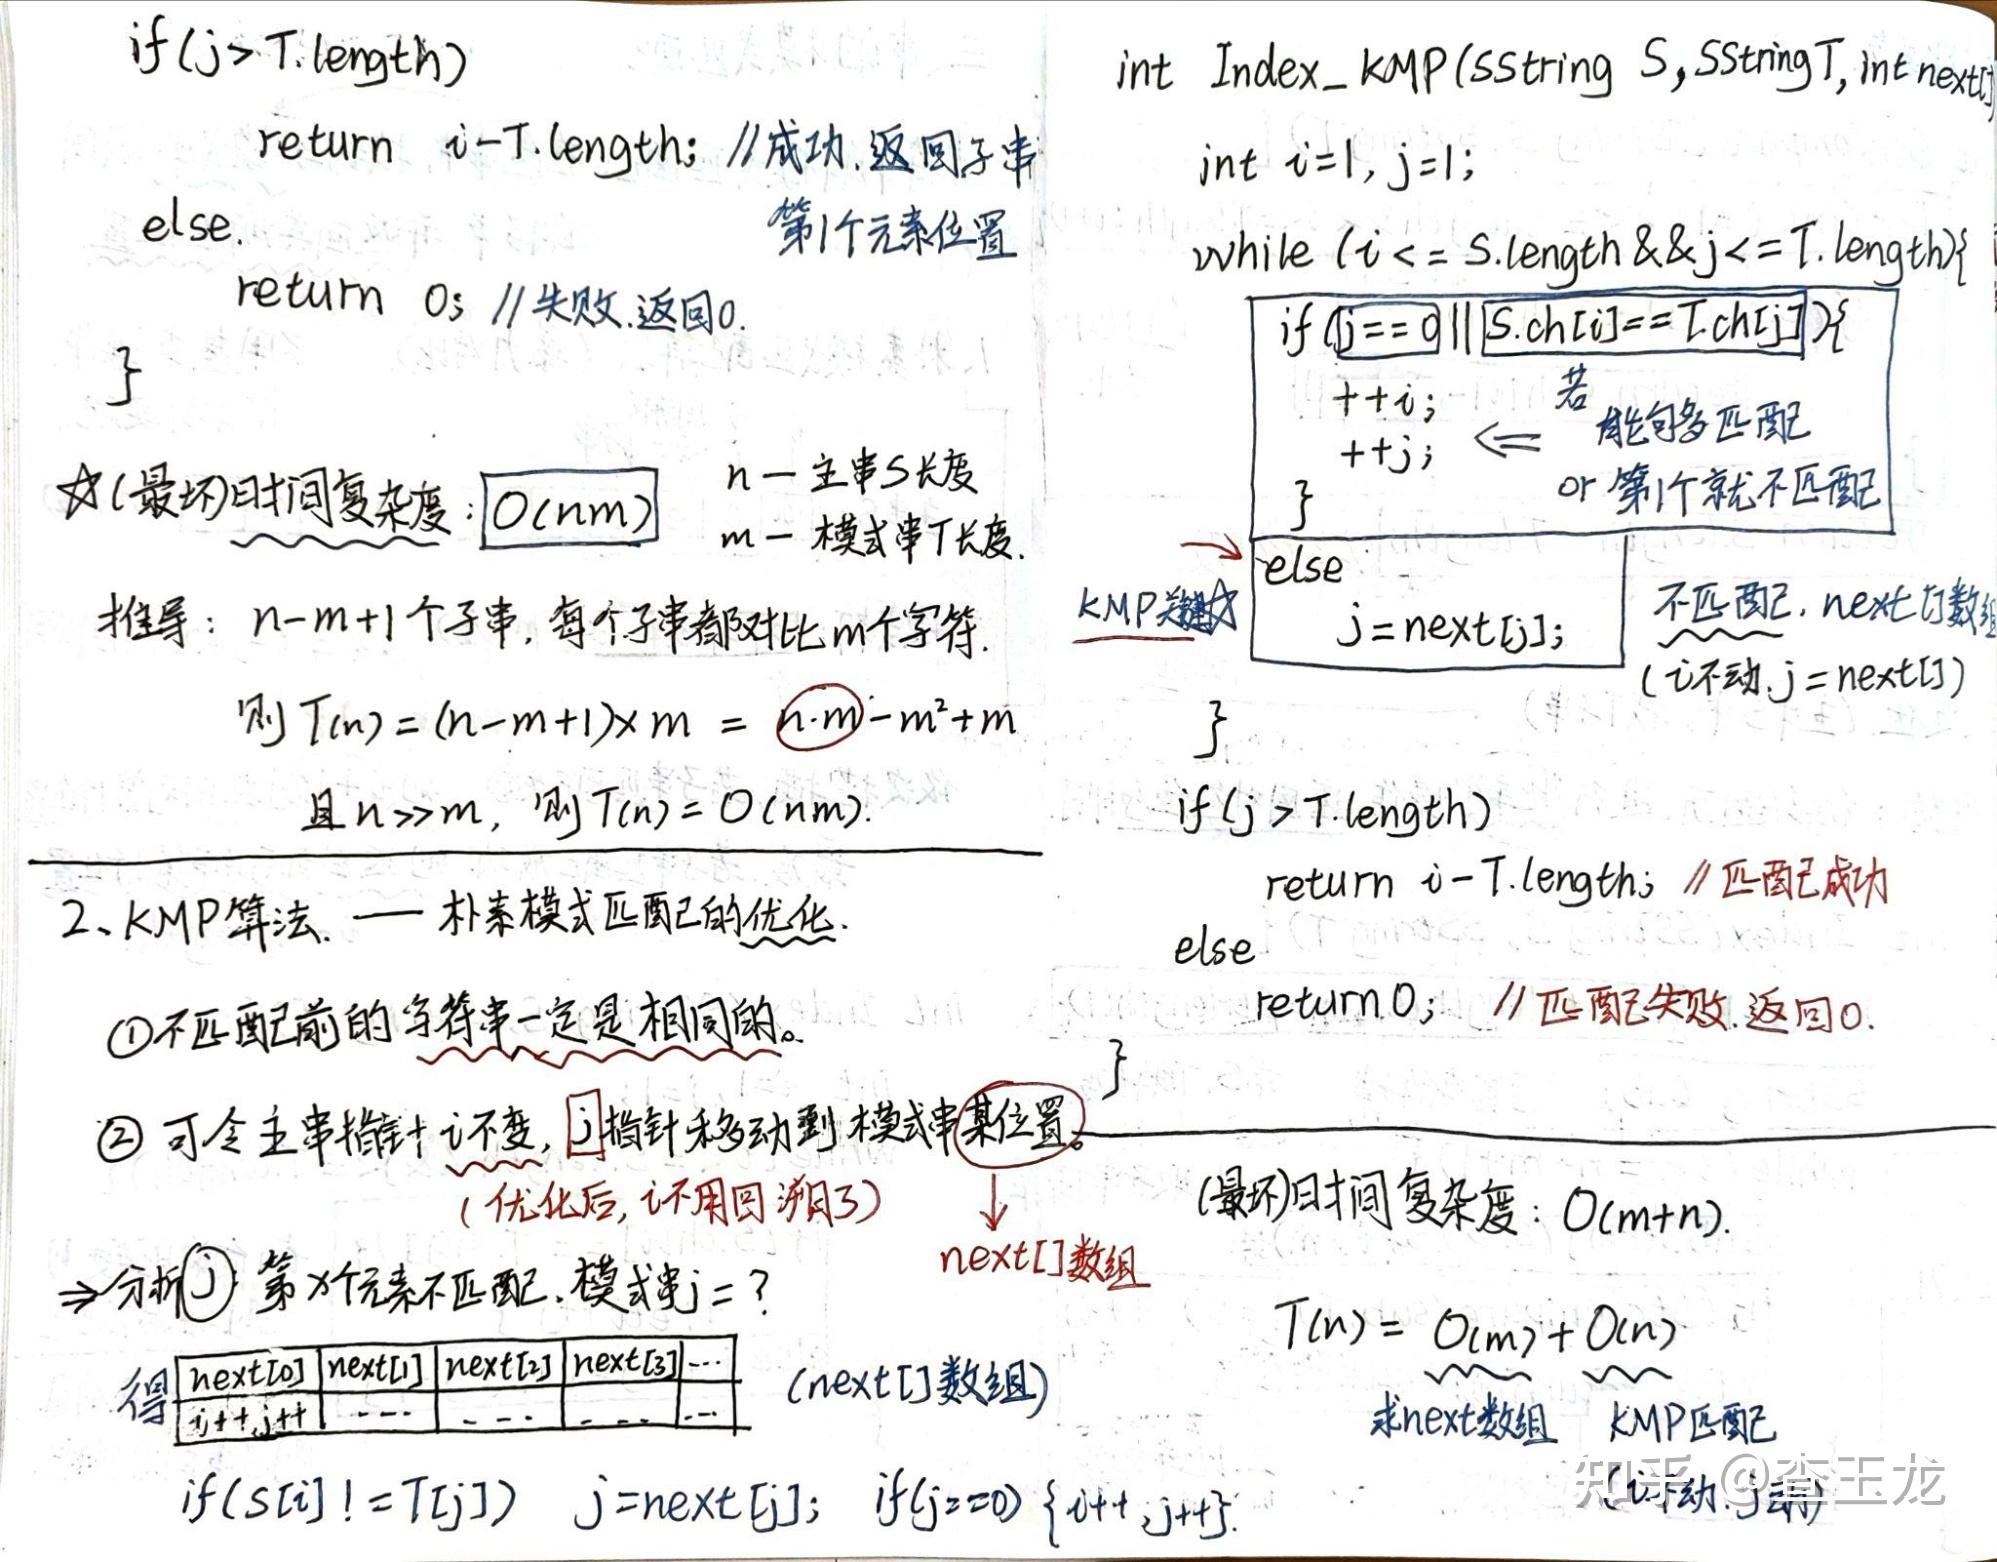 if(j>T.length)
return i-T.length; //成功.返回子串
第1个元素位置
else.
return 0; //失败.返回0.
}
☆(最坏)时间复杂度: O(nm)
n—主串S长度
m—模式串T长度.
推导: n-m+1个子串, 每个子串都对比m个字符.
则 T(n) = (n-m+1)×m = n·m-m²+m
且n>>m, 则T(n)=O(nm).
2、KMP算法. —— 朴素模式匹配的优化.
①不匹配前的字符串一定是相同的。
② 可令主串指针i不变, j指针移动到模式串某位置。
(优化后, i不用回溯了)
next[]数组
⇒分析j: 第x个元素不匹配.模式串j=?
得
next[0] next[1] next[2] next[3] ...
i++,j++ --- --- --- ...
(next[]数组)
if(S[i]!=T[j]) j=next[j]; if(j==0){i++;j++}.
int Index_KMP(SString S,SString T,int next[]
int i=1, j=1;
while (i<=S.length&&j<=T.length){
if(j==0||S.ch[i]==T.ch[j]){
++i;
++j;
}
若
能匹配
or 第1个就不匹配
else
j=next[j];
KMP关键
不匹配.next[]数组
(i不动.j=next[])
}
if(j>T.length)
return i-T.length; //匹配成功
else
return 0; //匹配失败.返回0.
}
(最坏)时间复杂度: O(m+n).
T(n) = O(m)+O(n)
求next数组 KMP匹配
(i不动.j动)
知乎 @查玉龙